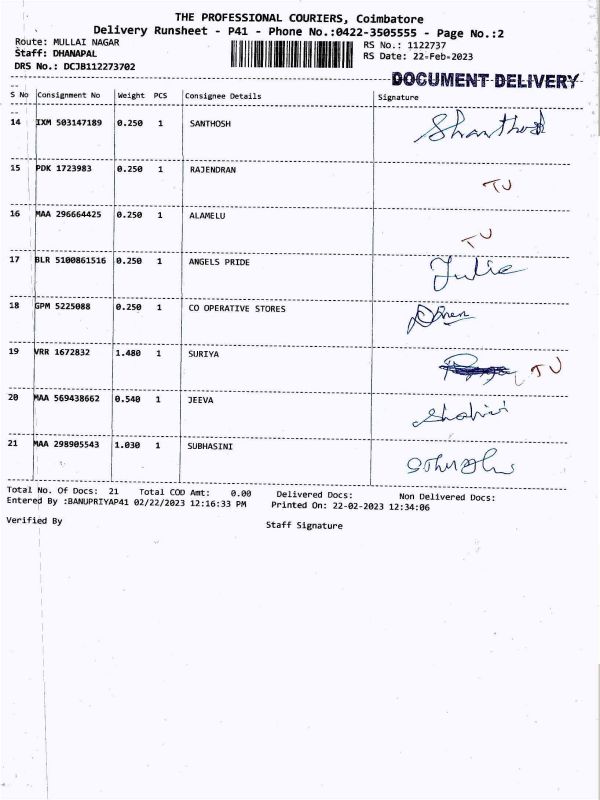 THE PROFESSIONAL COURIERS, Coimbatore
Delivery Runsheet - P41 - Phone No.:0422-3505555 - Page No.:2
Route: MULLAI NAGAR RS No.: 1122737
Staff: DHANAPAL RS Date: 22-Feb-2023
DRS No.: DCJB112273702
DOCUMENT DELIVERY
S No Consignment No Weight PCS Consignee Details Signature
14 IXM 503147189 0.250 1 SANTHOSH Shanthosh
15 PDK 1723983 0.250 1 RAJENDRAN TU
16 MAA 296664425 0.250 1 ALAMELU TU
17 BLR 5100861516 0.250 1 ANGELS PRIDE Julie
18 GPM 5225088 0.250 1 CO OPERATIVE STORES
19 VRR 1672832 1.480 1 SURIYA TU
20 MAA 569438662 0.540 1 JEEVA
21 MAA 298905543 1.030 1 SUBHASINI
Total No. Of Docs: 21 Total COD Amt: 0.00 Delivered Docs: Non Delivered Docs:
Entered By :BANUPRIYAP41 02/22/2023 12:16:33 PM Printed On: 22-02-2023 12:34:06
Verified By Staff Signature